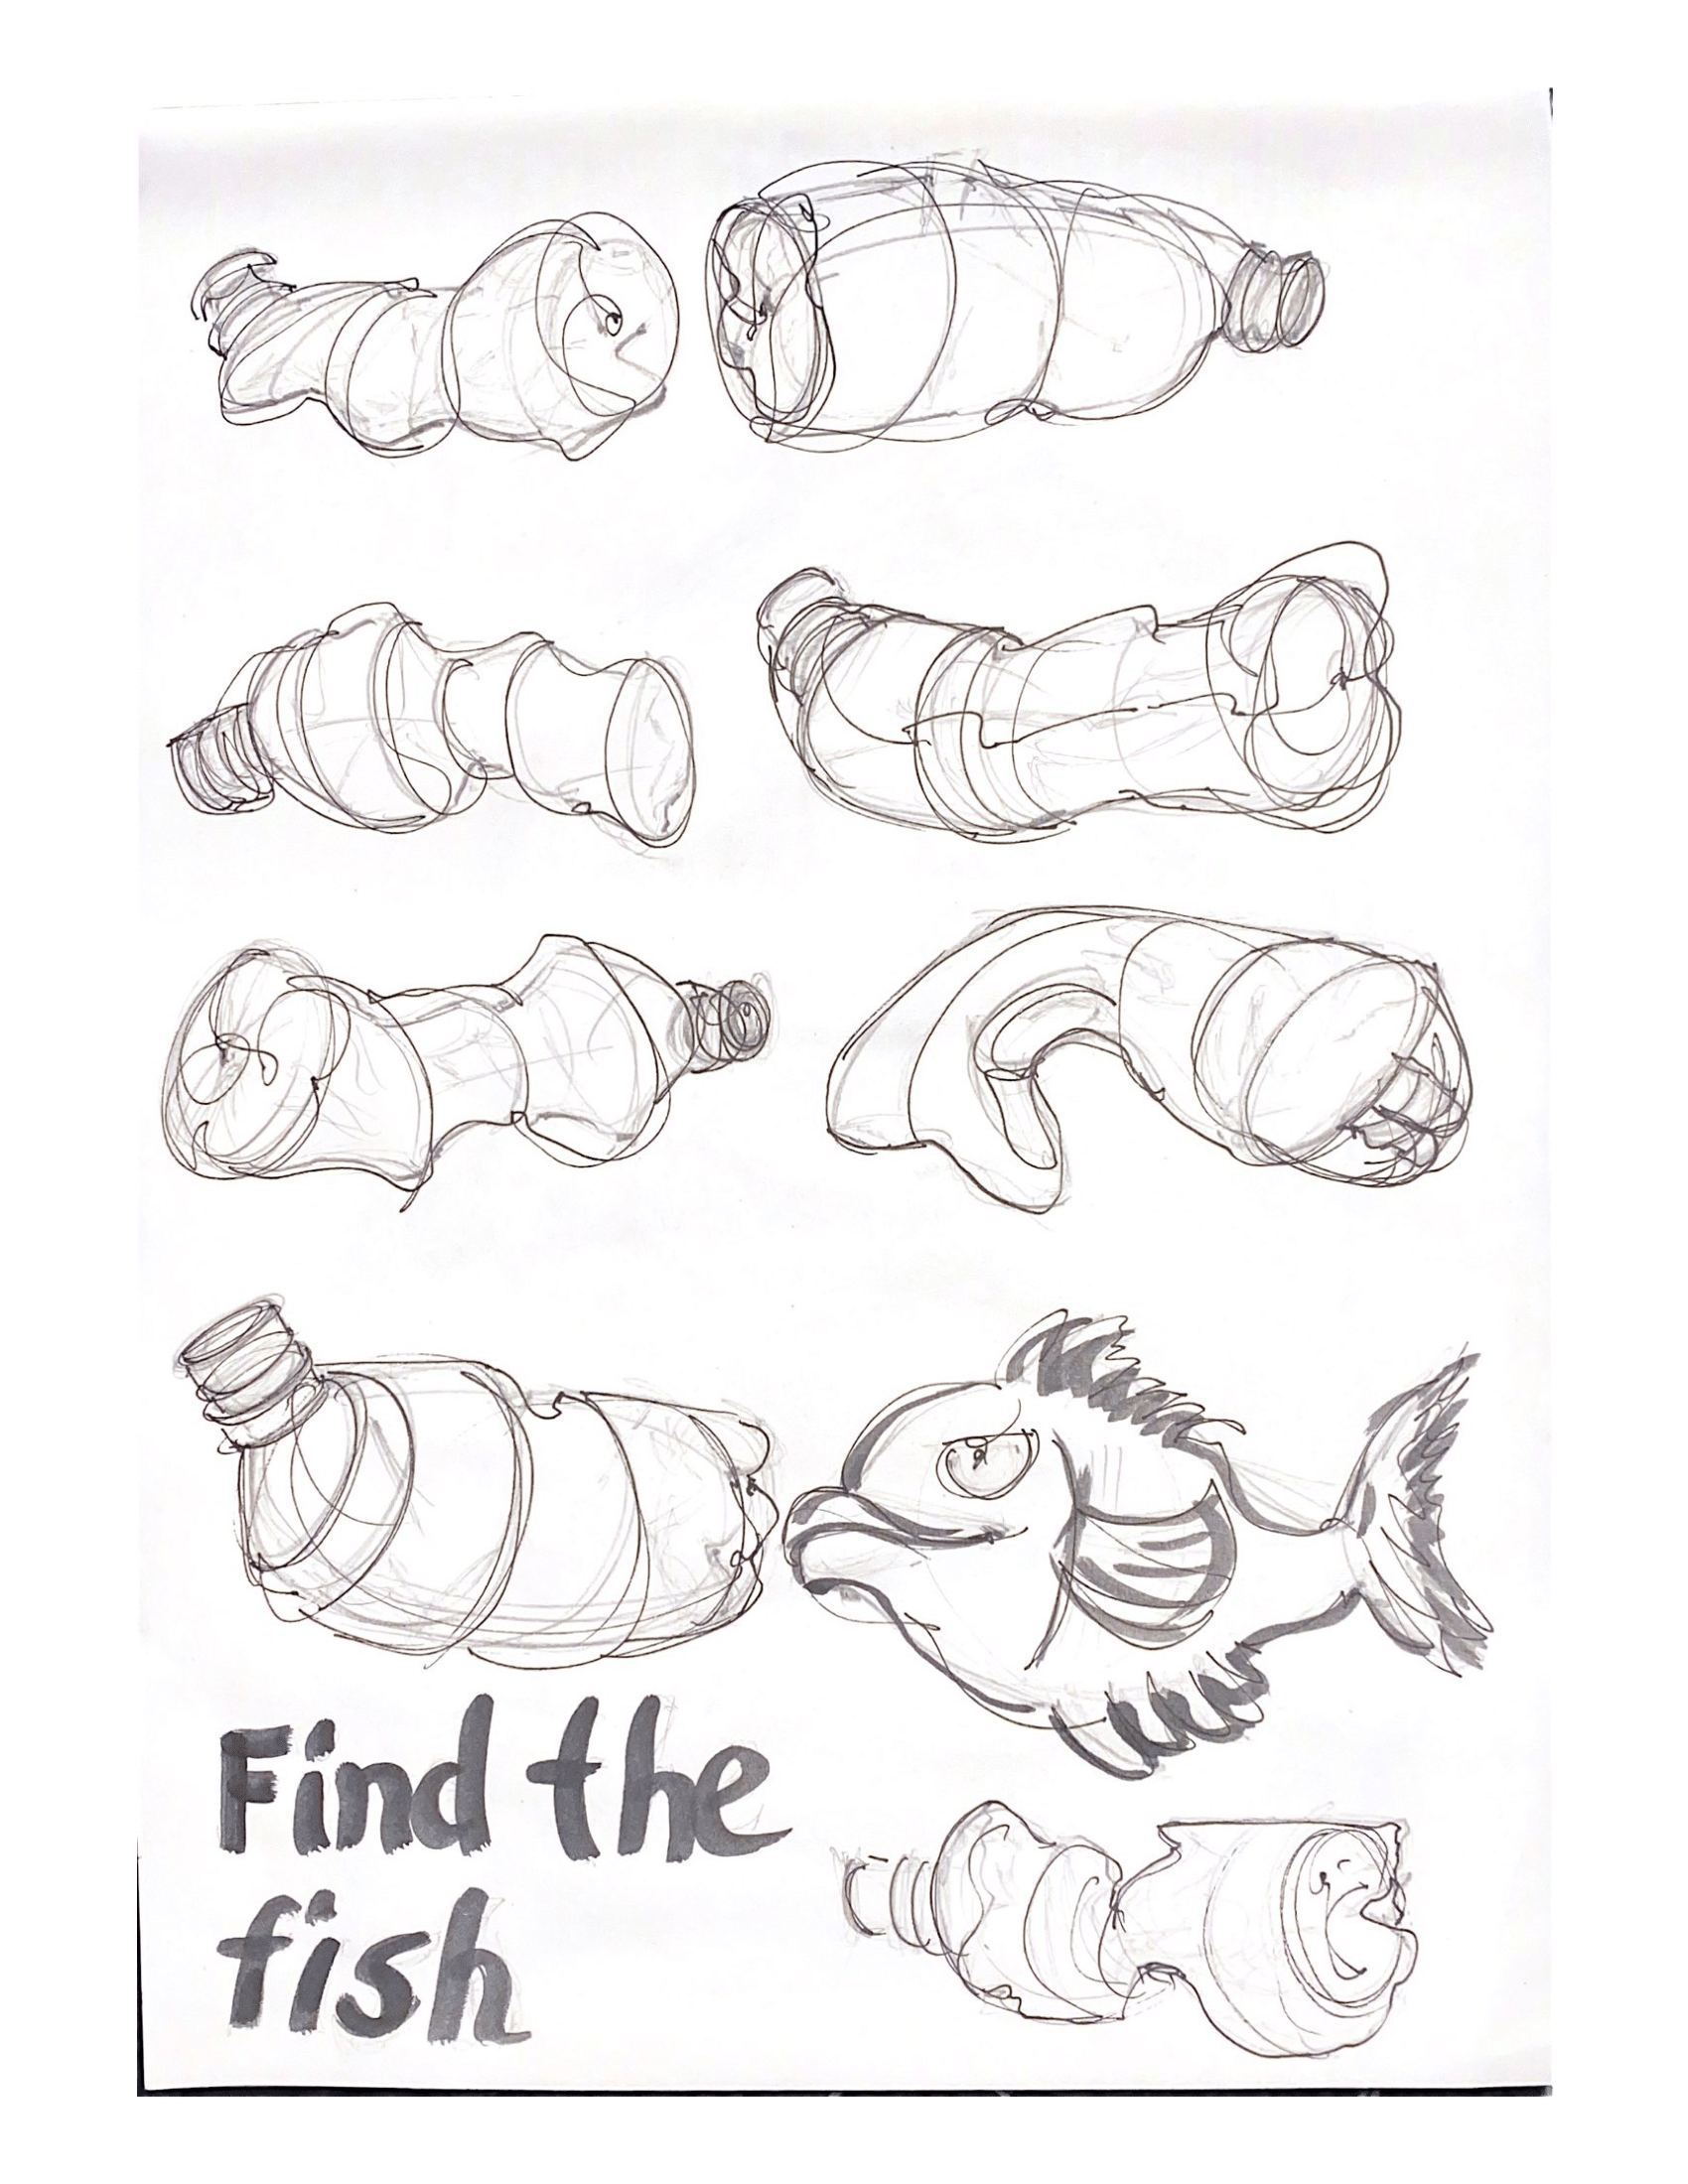 Find the
fish